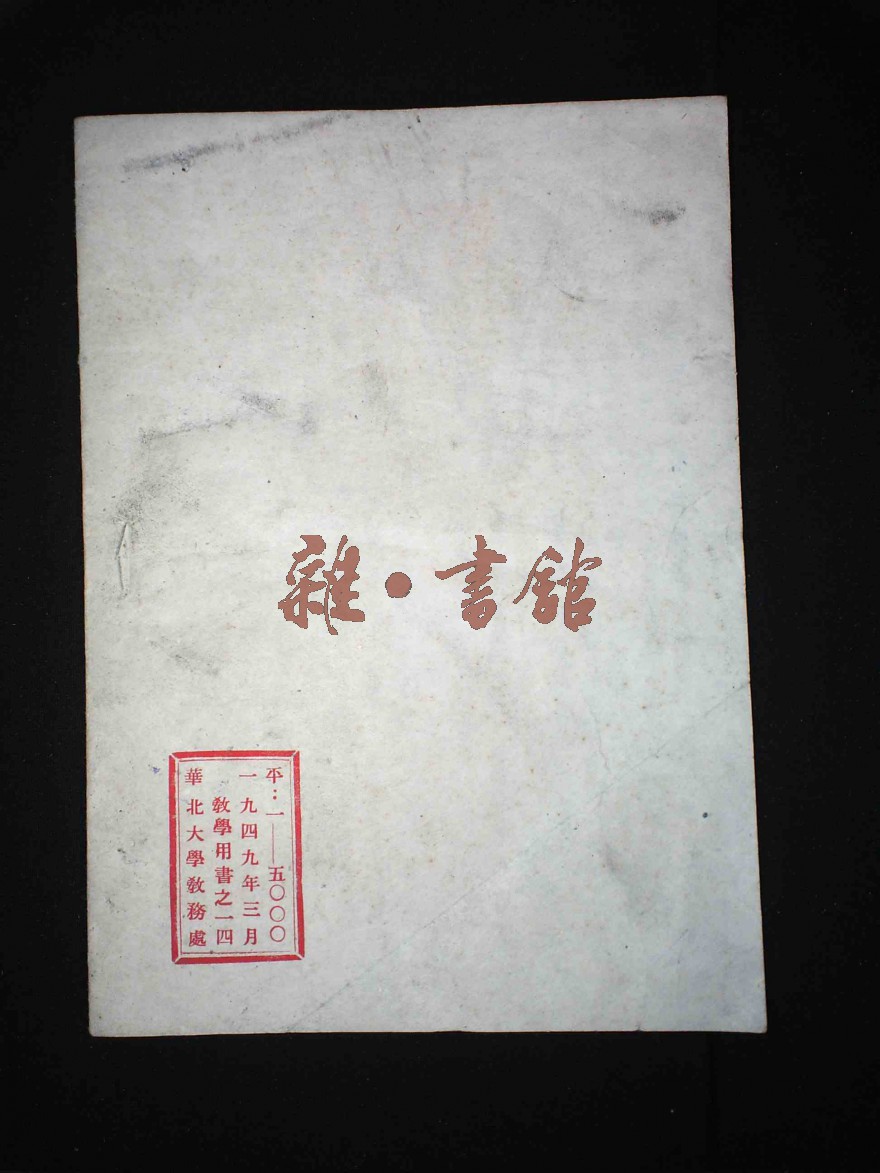 雜·書館
平：一——五〇〇〇
一九四九年三月
敎學用書之一四
華北大學敎務處